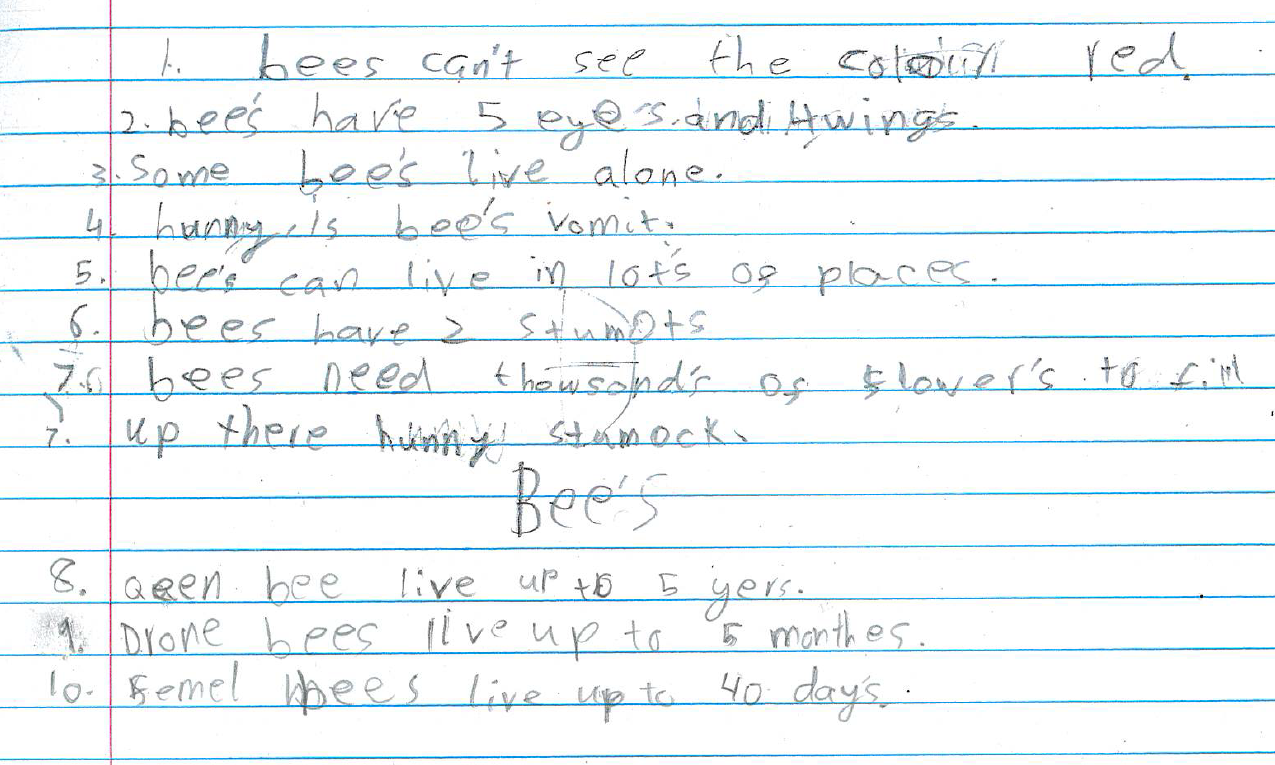 1. bees can't see the colour red.
2. bee's have 5 eye's. and 4 wings.
3. Some bee's live alone.
4. hunny is bee's vomit.
5. bee's can live in lot's of places.
6. bees have 2 stumots
7. bees need thowsond's of flower's to fill
7. up there hunny stumock.
Bee's
8. Qeen bee live up to 5 yers.
9. Drone bees live up to 5 monthes.
10. Femel bees live up to 40 day's.